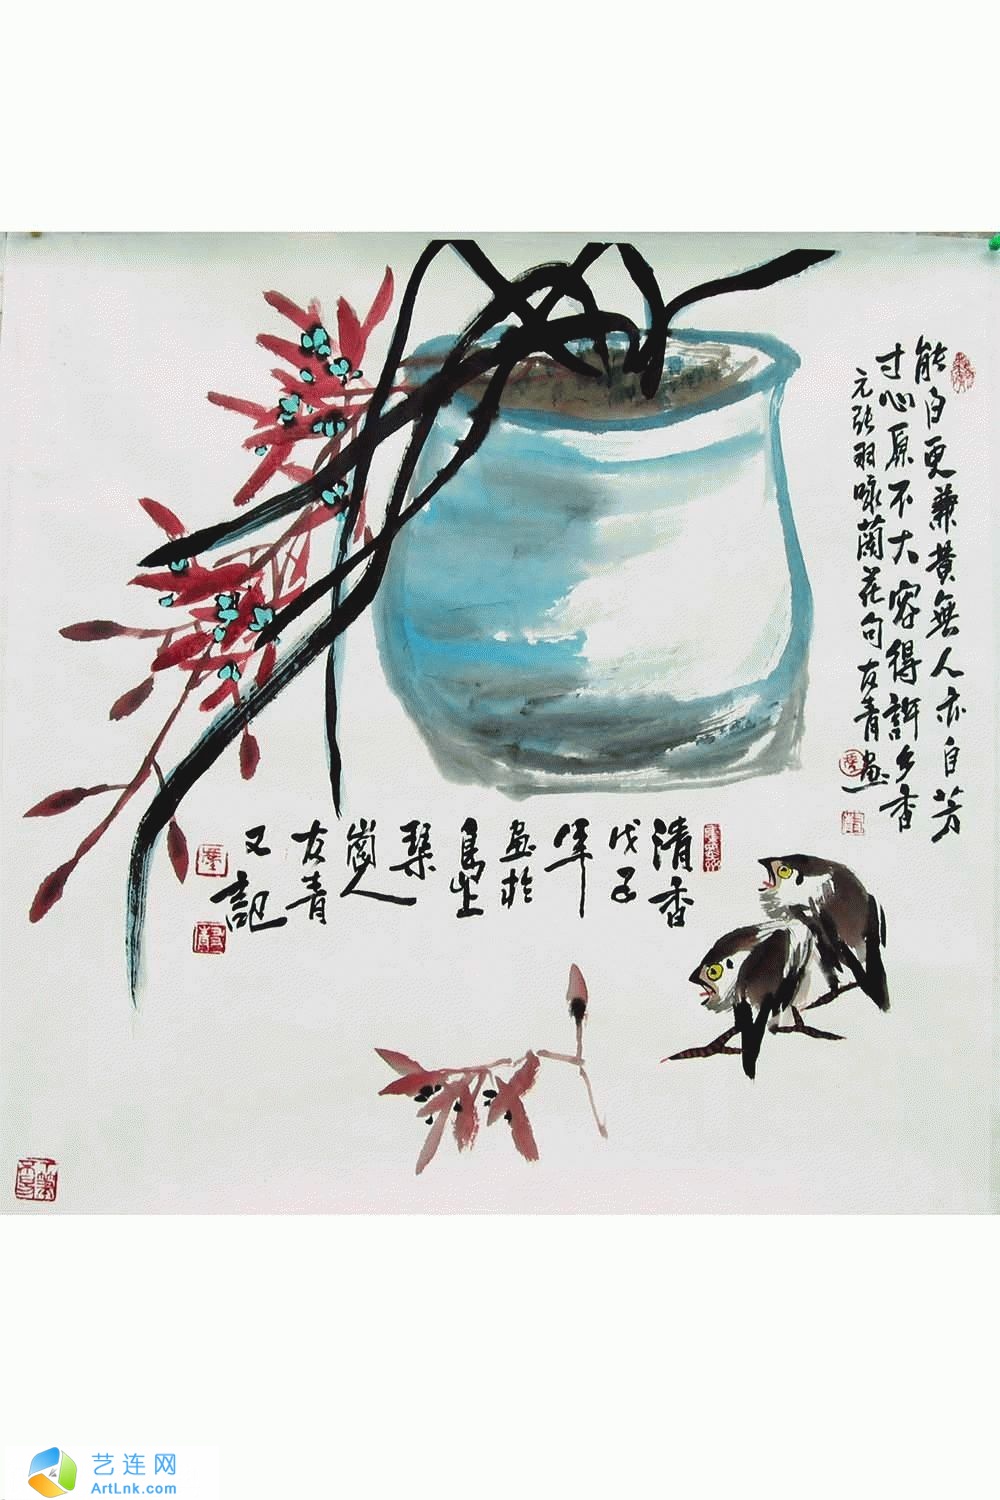 能白更兼黄無人亦自芳
寸心原不大容得許多香
元張羽咏蘭花句友青畫
清香
戊子
年
畫於
島上
琴
崗人
友青
又記
艺连网
ArtLnk.com